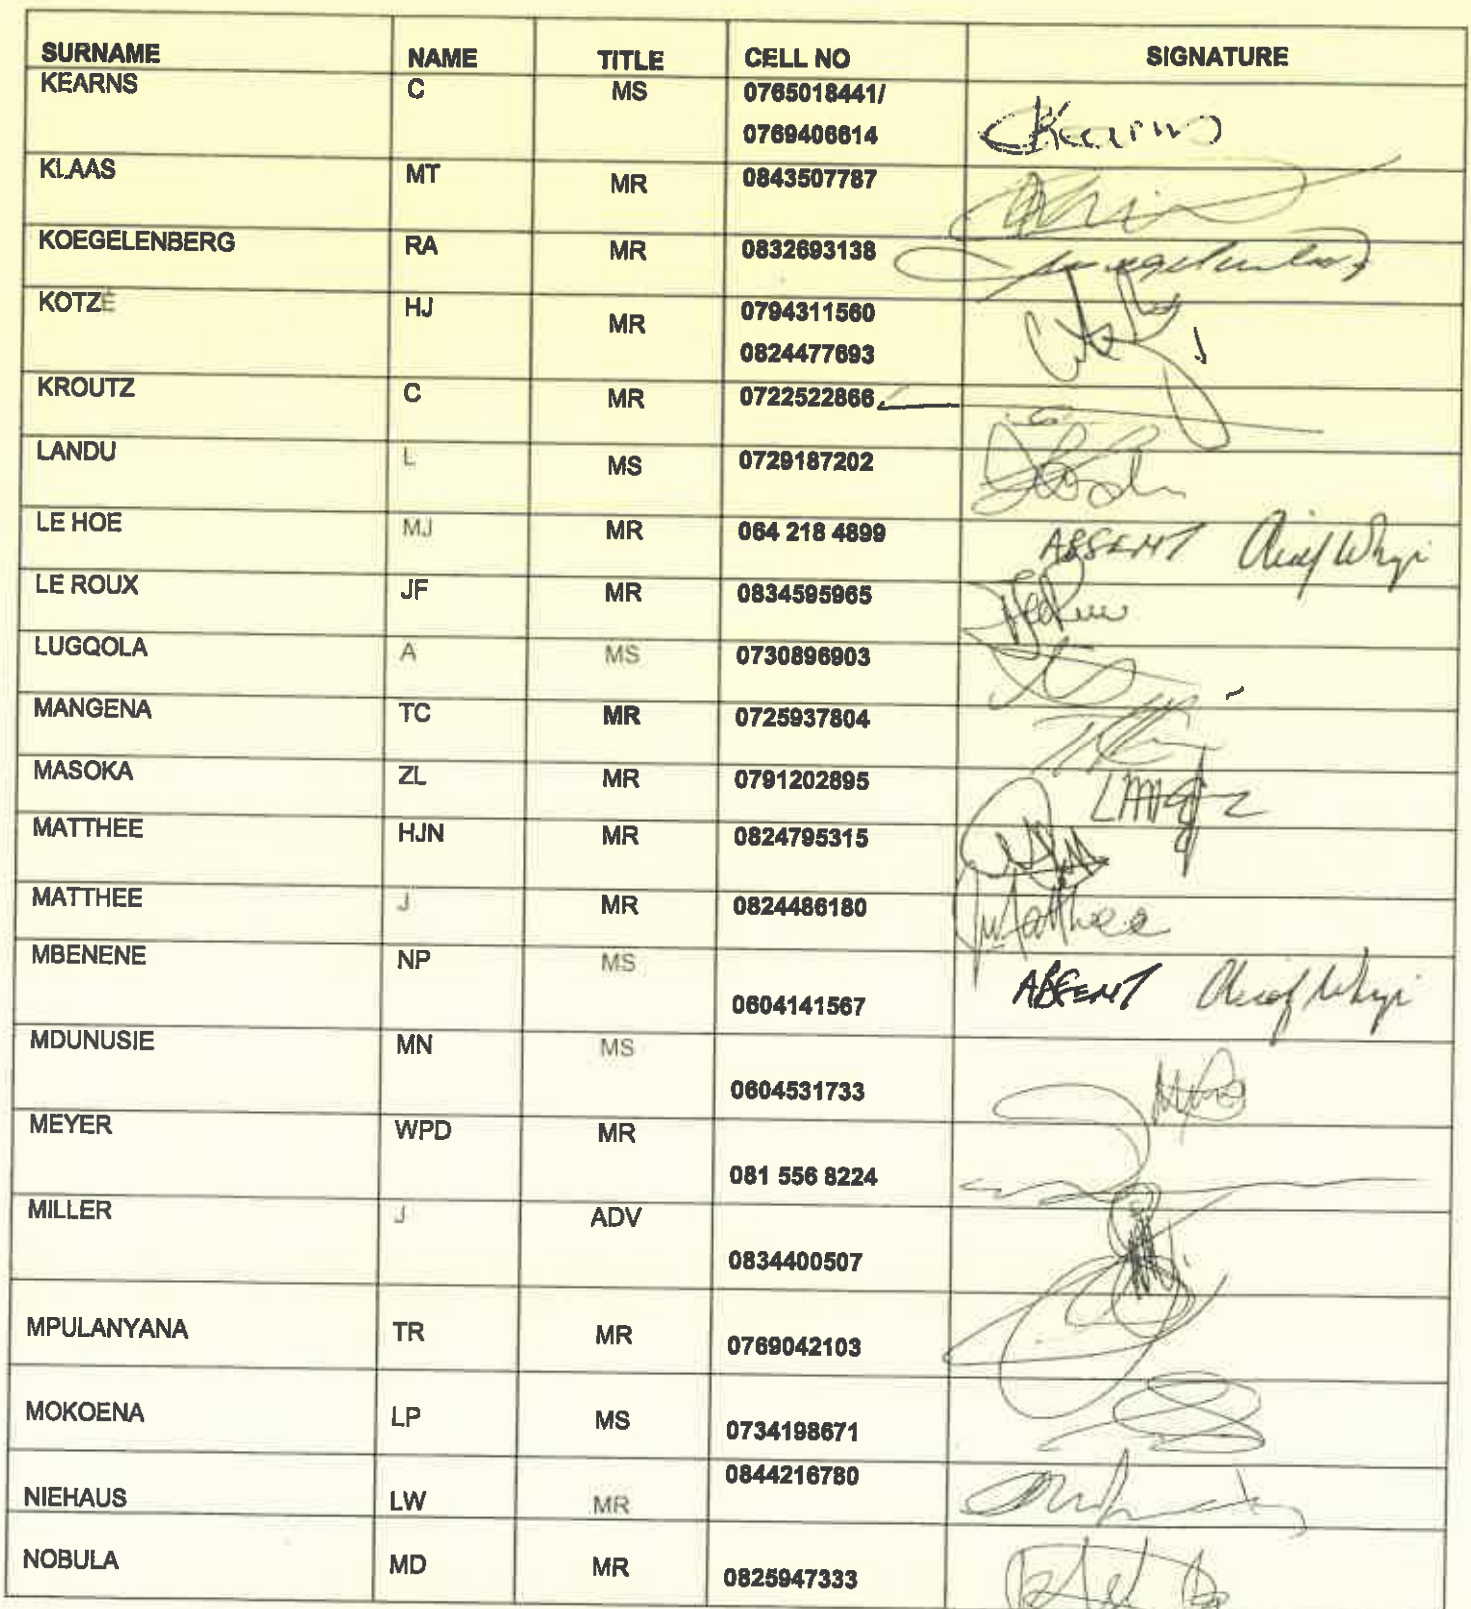 SURNAME NAME TITLE CELL NO SIGNATURE
KEARNS C MS 0765018441/
0769406614 CKearns
KLAAS MT MR 0843507787
KOEGELENBERG RA MR 0832693138
KOTZÉ HJ MR 0794311560
0824477693
KROUTZ C MR 0722522866
LANDU L MS 0729187202
LE HOE MJ MR 064 218 4899 ABSENT Chief Whip
LE ROUX JF MR 0834595965
LUGQOLA A MS 0730896903
MANGENA TC MR 0725937804
MASOKA ZL MR 0791202895
MATTHEE HJN MR 0824795315
MATTHEE J MR 0824486180 JMatthee
MBENENE NP MS
0604141567 ABSENT Chief Whip
MDUNUSIE MN MS
0604531733
MEYER WPD MR
081 556 8224
MILLER J ADV
0834400507
MPULANYANA TR MR 0769042103
MOKOENA LP MS 0734198671
0844216780
NIEHAUS LW MR
NOBULA MD MR 0825947333